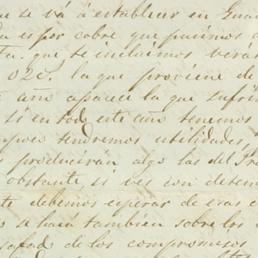 se vá á establecer en Gua
es por cobre que pusimos a
ta. que te incluimos verás
02c. la que proviene de
año aparece la que sufrim
si en todo este año tenemos
tendremos utilidades,
producirán algo las del Pra
obstante, si ves con deten
te debemos esperar de esas c
se hará tambien sobre los
de los compromisos